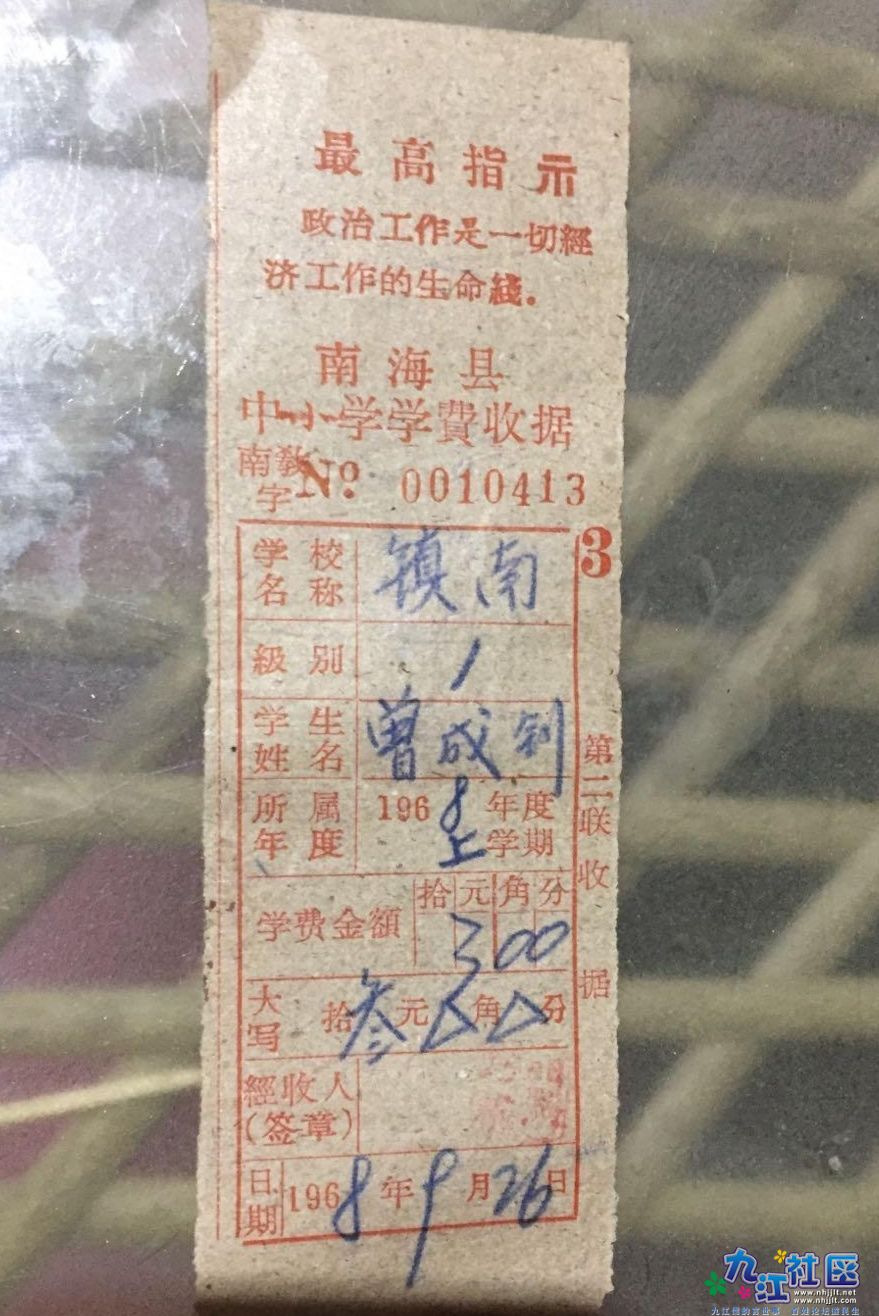 最高指示
政治工作是一切經
济工作的生命綫.
南海县
中小学学費收据
南教字 № 0010413
3
学校名称 镇南
級别 1
学生姓名 曾成钊
所属年度 1968年度上学期
拾元角分
学费金額 300
大写 拾叁元△角△分
經收人(签章)
日期 1968年9月26日
第二联收据
九江社区
www.nhjjlt.net
www.nhjjlt.com